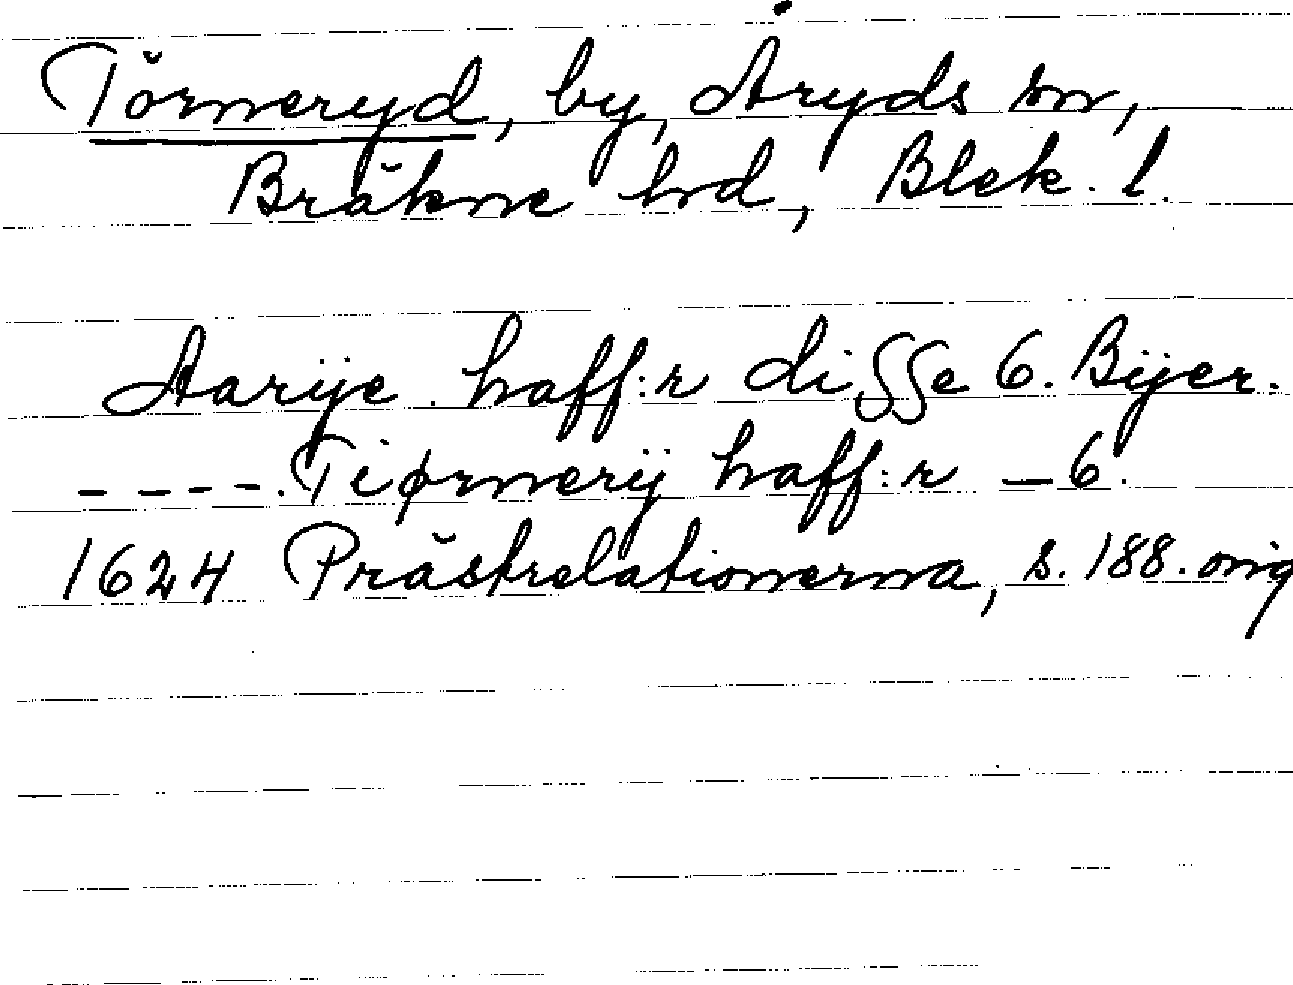 Törneryd, by, Åryds sn,
Bräkne hd, Blek. l.
Aarÿe haff:r disse 6. Bÿer.
- - - -. Tiørnerÿ haff:r — 6.
1624 Prästrelationerna, s. 188. orig